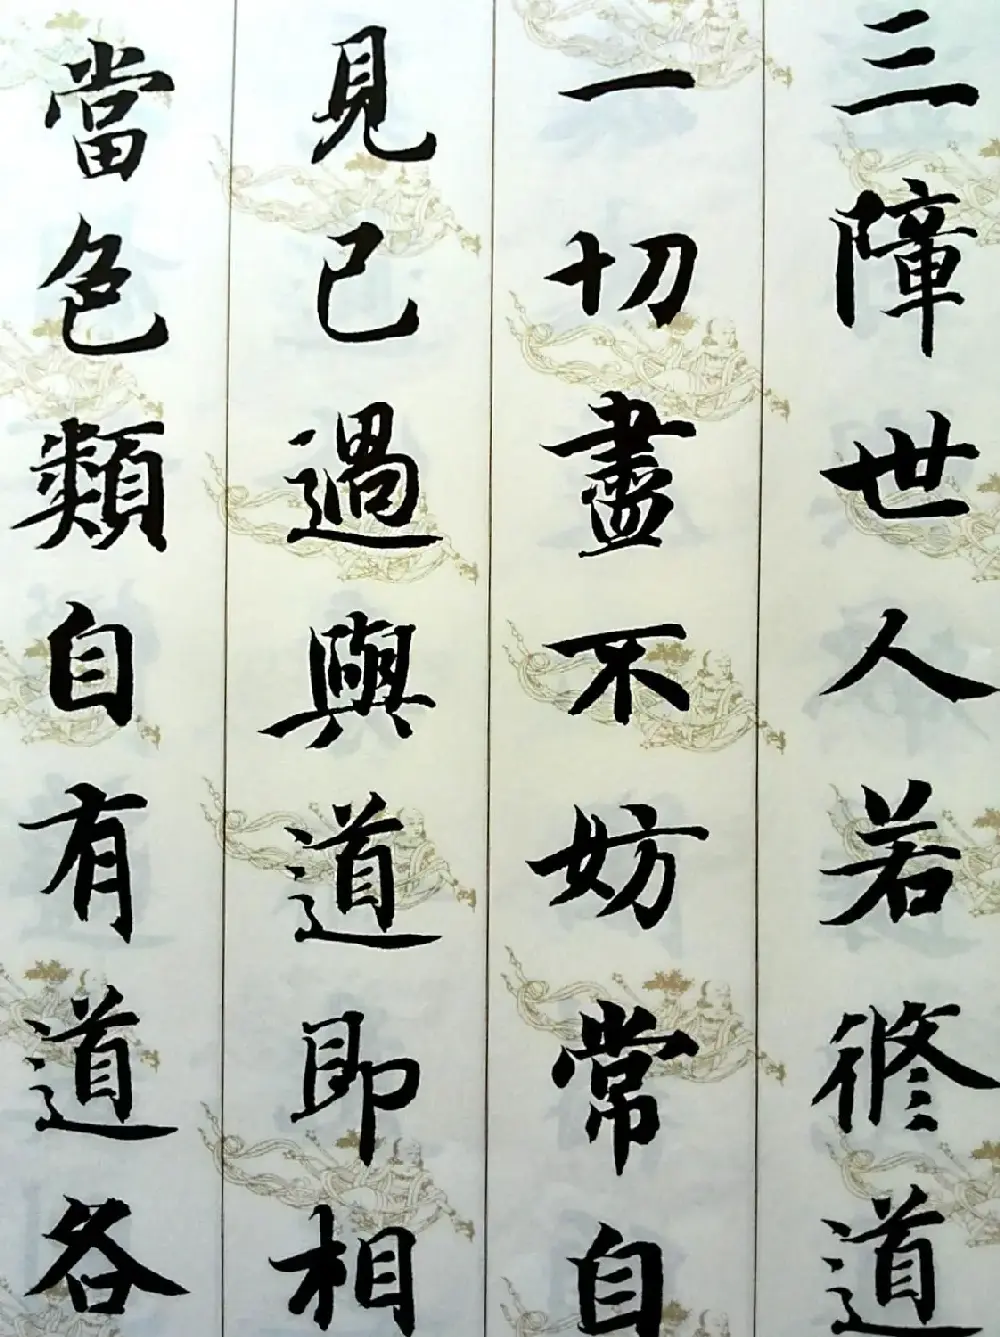 三障世人若修道
一切盡不妨常自
見己過與道即相
當色類自有道各